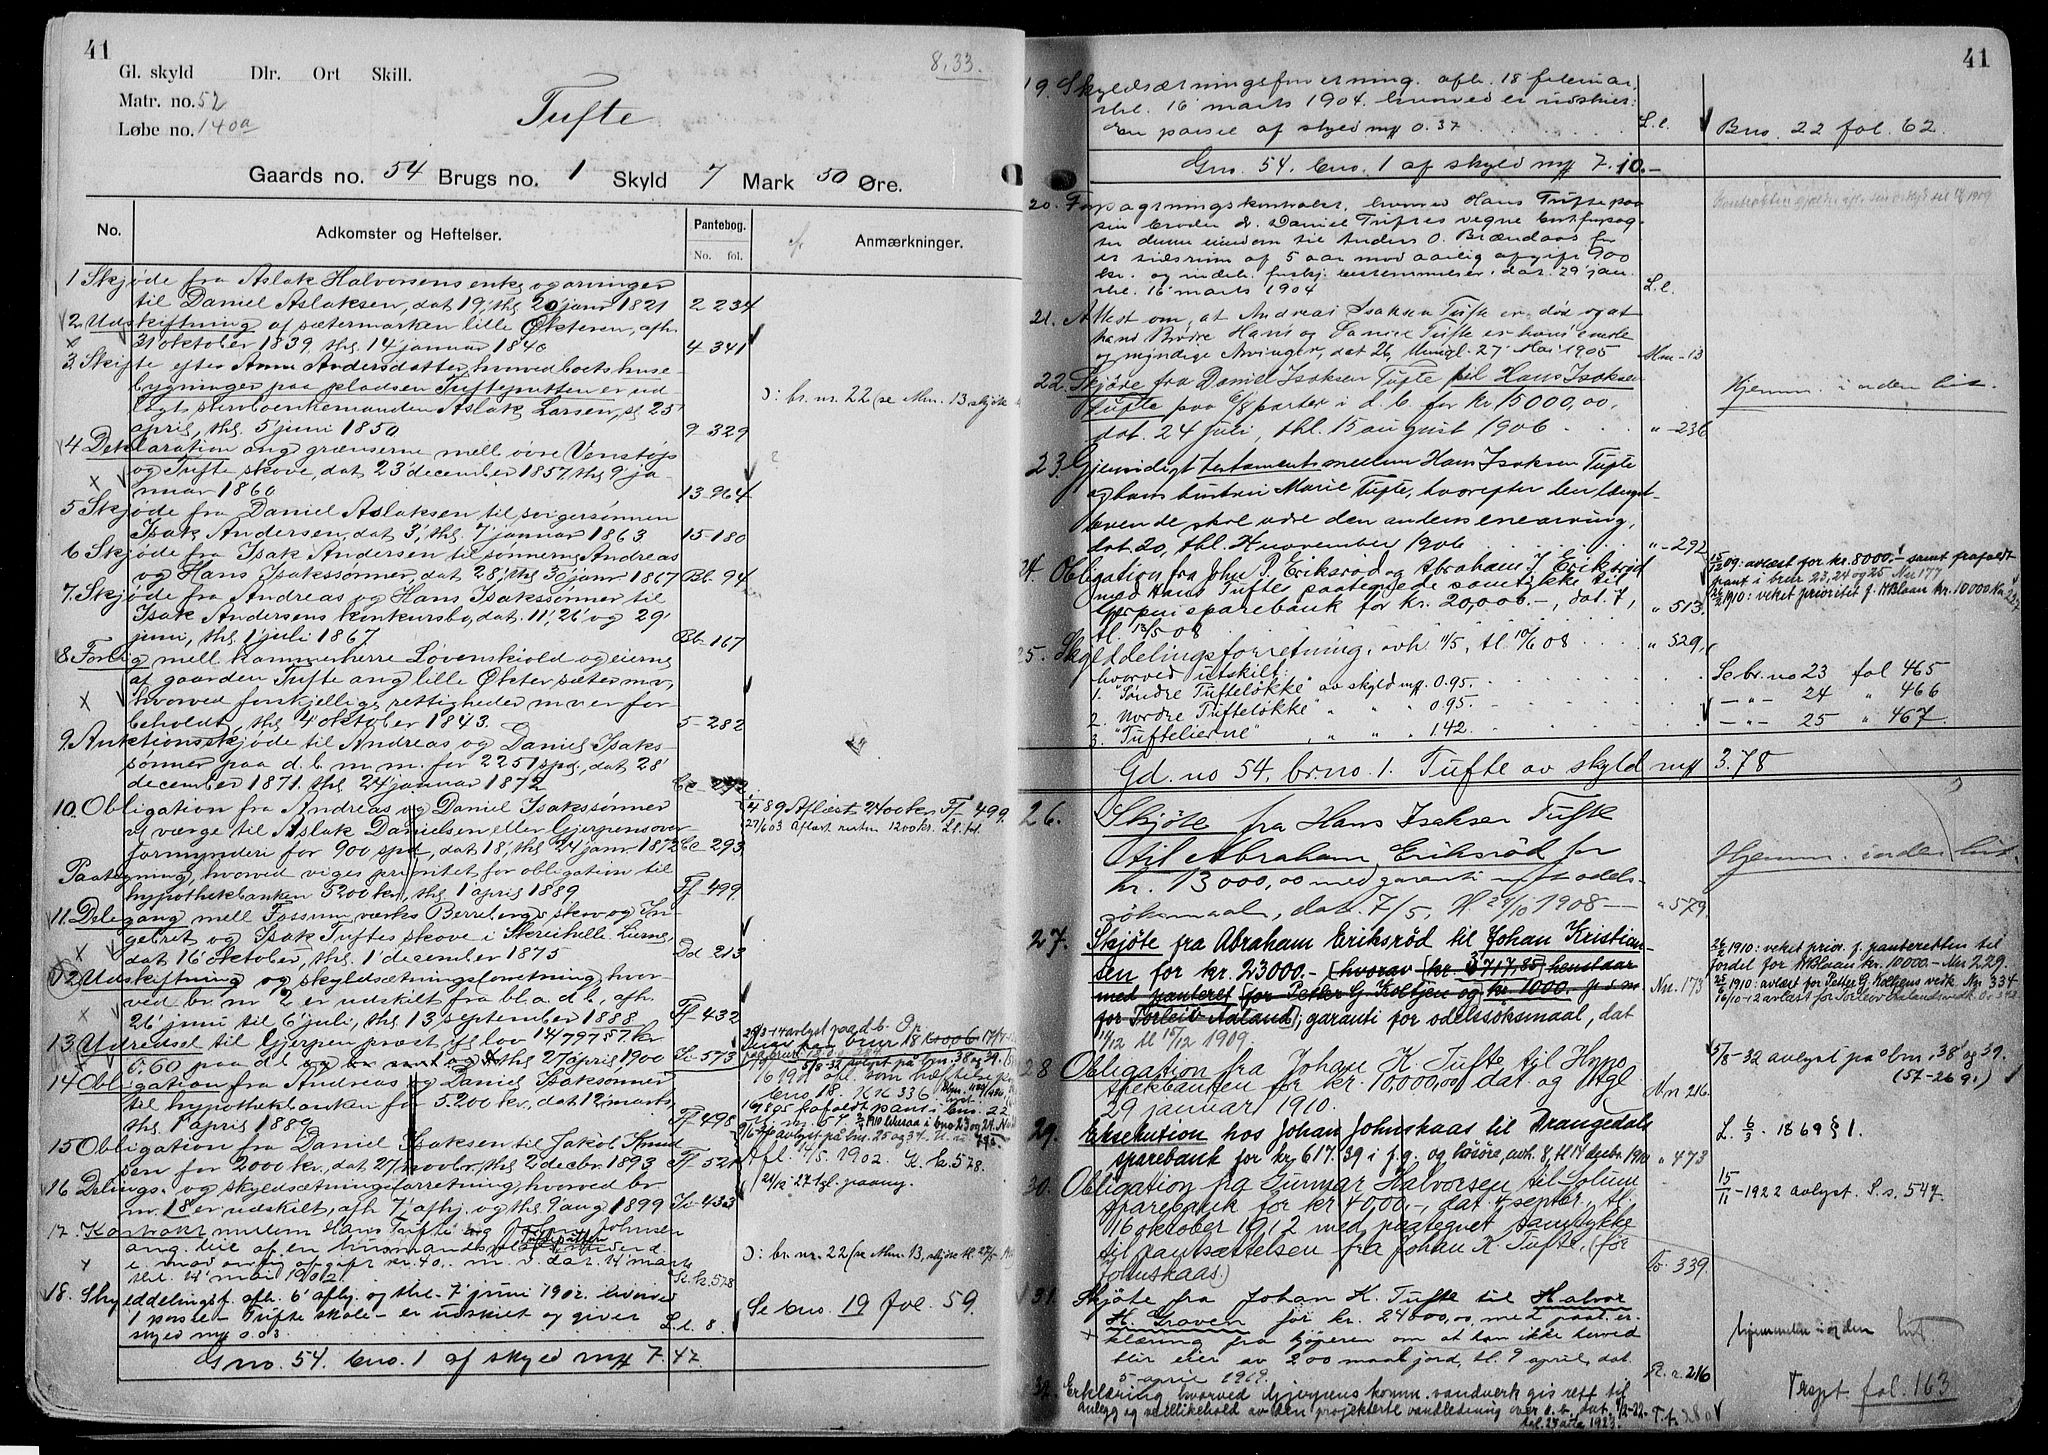 41
8.33.
Gl. skyld Dlr. Ort Skill.
Matr. no. 52
Løbe no. 140a
Tufte
Gaards no. 54 Brugs no. 1 Skyld 7 Mark 50 Øre.
No. Adkomster og Heftelser. Pantebog. No. fol. Anmærkninger.
1 Skjøde fra Aslak Halvorsens enke og arvinger
til Daniel Aslaksen, dat 19', thl 20 janr 1821 2 234
2. Udskiftning af sætermarken lille Økteren, afh.
31 oktober 1839, thl. 14 januar 1840 4 341
3. Skifte efter Anne Andersdatter, hvorved boets huse-
bygninger paa pladsen Tufteputten er ud
lagt stervboenkemanden Aslak Larsen, sl. 25'
april, thl. 5' juni 1850 9 329
ɔ: br. nr. 22 (se Mm. 13, skjøte
4 Deklaration ang grænserne mell øvre Venstøp
og Tufte skove, dat 23' december 1857, thl 9' ja-
nuar 1860 13-964
5 Skjøde fra Daniel Aslaksen til svigersønnen
Isak Andersen, dat 3', thl. 7' januar 1863 15-180
6 Skjøde fra Isak Andersen til sønnerne Andreas
og Hans Isakssønner, dat 28', thl 30 janr 1867 Bb. 94
7. Skjøde fra Andreas og Hans Isakssønner til
Isak Andersens konkursbo, dat. 11', 26' og 29'
juni, thl 1' juli 1867 Bb 167
8. Forlig mell kammerherre Løvenskiold og eierne
af gaarden Tufte ang lille Økter sæter m v,
hvorved forskjellige rettigheder m v er for-
beholdt, thl 4 oktober 1843. 5-282
9. Auktionsskjøde til Andreas og Daniel Isaks-
sønner paa d. b. m. m. for 2251 spd, dat 28'
december 1871. thl 24' januar 1872 Cc 292
10. Obligation fra Andreas og Daniel Isakssønner
og værge til Aslak Danielsen eller Gjerpens over
formynderi for 900 spd, dat 18', thl 24' janr 1872 Cc-293
4/4 89 Aflæst 2400 kr Ff 499.
27/6 03 aflæst resten 1200 kr. Ll. fol.
Paategning, hvorved viges prioritet for obligation til
hypothekbanken 5200 kr, thl 1 april 1889. Ff-499.
11. Delegang mell Fossum værks Berreberg skov og In-
gebret og Isak Tuftes skove i Skreihelle Lierne,
dat 16' oktober, thl. 1' december 1875 Dd 213
12 Udskiftning og skyldsætningsforretning, hvor-
ved br. nr 2 er udskilt fra bl. a. d. b, afh.
26' juni til 6' juli, thl 13 september 1888 Ff-432
13. Udredsel til Gjerpen prest if lov 14/7 97 § 7. kr
6.60 paa d. b. thl 27 april 1900 Ii-573
14 Obligation fra Andreas og Daniel Isaksønner
til hypothekbanken for 5200 kr, dat 12' marts,
thl 1' april 1889. Ff-498
15 Obligation fra Daniel Isaksen til Jakob Knud
sen for 2000 kr, dat 27 novbr, thl 2 decbr. 1893 Ff-521
Afl. 14/5. 1902. K. k. 578.
16 Delings- og skyldsætningsforretning, hvorved br
nr. 18 er udskilt, afh 7', afhj. og thl 9' aug 1899 Ii-433
17. Kontrakt mellem Hans Tufte og John Johnsen
ang. leie af en husmandsplads Tufteputten
mod aarlig afgift kr. 40,- m. v. dat. 4' marts
thl. 4' mai 1902. K. k. 578
ɔ: br. nr. 22 (se Mm. 13, skjøte
18. Skylddelingsf. afh. 6' afhj. og thl. 7' juni 1902. hvorved
1 parsel - Tufte skole - er udskilt og giver
skyld mrk 0.03 L. l. 8.
Se bno. 19 fol. 59.
Gno. 54. bno. 1 af skyld mrk 7.47.
41
19. Skyldsætningsforretning. afh. 18 februar,
thl. 16 marts 1904. hvorved er udskilt
en parsel af skyld mrk 0.37 L. l.
Bno. 22 fol. 62.
Gno. 54. bno. 1 af skyld mrk 7.10.-
20. Forpagtningskontrakt, hvorved Hans Tufte paa
sin broder Daniel Tuftes vegne bortforpag-
ter denne eiendom til Anders O. Brændaas for
et tidsrum af 5 aar mod aarlig afgift 900
kr. og indeh. forskj. bestemmelser. dat. 29' jan.
thl. 16' marts 1904 L. l.
21. Attest om, at Andreas Isaksen Tufte er død og at
hans Brødre Hans og Daniel Tufte er hans eneste
og myndige Arvinger, dat 26, thingl. 27 Mai 1905 Mm-13
22. Skjøde fra Daniel Isaksen Tufte til Hans Isaksen
Tufte paa 6/8 parter i d. b. for kr 15000,00,
dat. 24 juli, thl. 15 august 1906 " -236
Hjemm. i orden
23. Gjensidigt testament mellem Hans Isaksen Tufte
og hans hustru Marie Tufte, hvorefter den længst-
levende skal være den andens enearving,
dat. 20, thl. 24 november 1906 " -292
24. Obligation fra John I. Eriksrød og Abraham J. Eriksrød
med Hans Tuftes paategnede samtykke til
Gjerpen sparebank for kr. 20,000.-, dat. 7,
tl. 13/5 08 " 513.
12/2 1910: veket prioritet f. H Blaan kr. 10000
25. Skylddelingsforretning, avh. 11/5, tl. 10/6 08 " 529,
hvorved utskilt:
1. "Søndre Tufteløkke" av skyld m. 0.95. Se br. no 23 fol 465
2. Nordre Tufteløkke" " " 0.95. — " — 24 " 466
3. "Tuftelierne" " " " 1.42. — " — 25 " 467.
Gd. no 54, br no. 1. Tufte av skyld mrk 3.78
26. Skjøte fra Hans Isaksen Tufte
til Abraham Eriksrød for
kr. 13 000,00 med garanti mot odels-
søksmaal, dat. 7/5, tl. 24/10 1908 — " 579
Hjemm. i orden
27. Skjøte fra Abraham Eriksrød til Johan Kristian-
sen for kr. 23000.- (hvorav (kr. 3717,85) henstaar
med panteret (for Petter G. Koltjen og kr. 1000.
for Torleiv Aaland); garanti for odelssøksmaal, dat
14/12 tl 15/12 1909. Nn. 173
1910: veket prior. f. panteretten til
fordel for H Blaan kr. 10000.- Nn 229.
1910: avlæst for Petter G. Koltjens vedk. Nn. 334
28 Obligation fra Johan K. Tufte til Hypo
thekbanken for kr. 10,000,00 dat og thgl
29 januar 1910. Nn 216.
5/8-32 avlyst paa bnr. 38 og 39.
(57-269.)
29. Eksekution hos Johan Johnskaas til Drangedals
sparebank for kr 617.39 i f. g. og løsøre, avh. 8, tl 14 decbr. 1910 " 473
L. 6/3 - 1869 § 1.
30. Obligation fra Gunnar Halvorsen til Solum
sparebank for kr 4000,-, dat 4 septbr., tl.
16 oktober 1912 med paategnet samtykke
til pantsættelsen fra Johan K Tufte, (før
Johnskaas.) Oo. 339.
15/11-1922 avlyst. S. s. 547.
31. Skjøte fra Johan K. Tufte til Halvor
H. Graven for kr. 24000,00, med paat. er-
klæring fra kjøperen om at han ikke herved
blir eier av 200 maal jord, tl. 9 april, dat
5 april 1919. R. r. 216
hjemmelen i orden
32. Erklæring hvorved Gjerpens komm. vandverk gis rett til
anlegg og vedlikehold av den projekterte vandledning over d. b., dat. 9/2-22. T. t. 280
tgl. 27 1923.
Trspt fol. 163